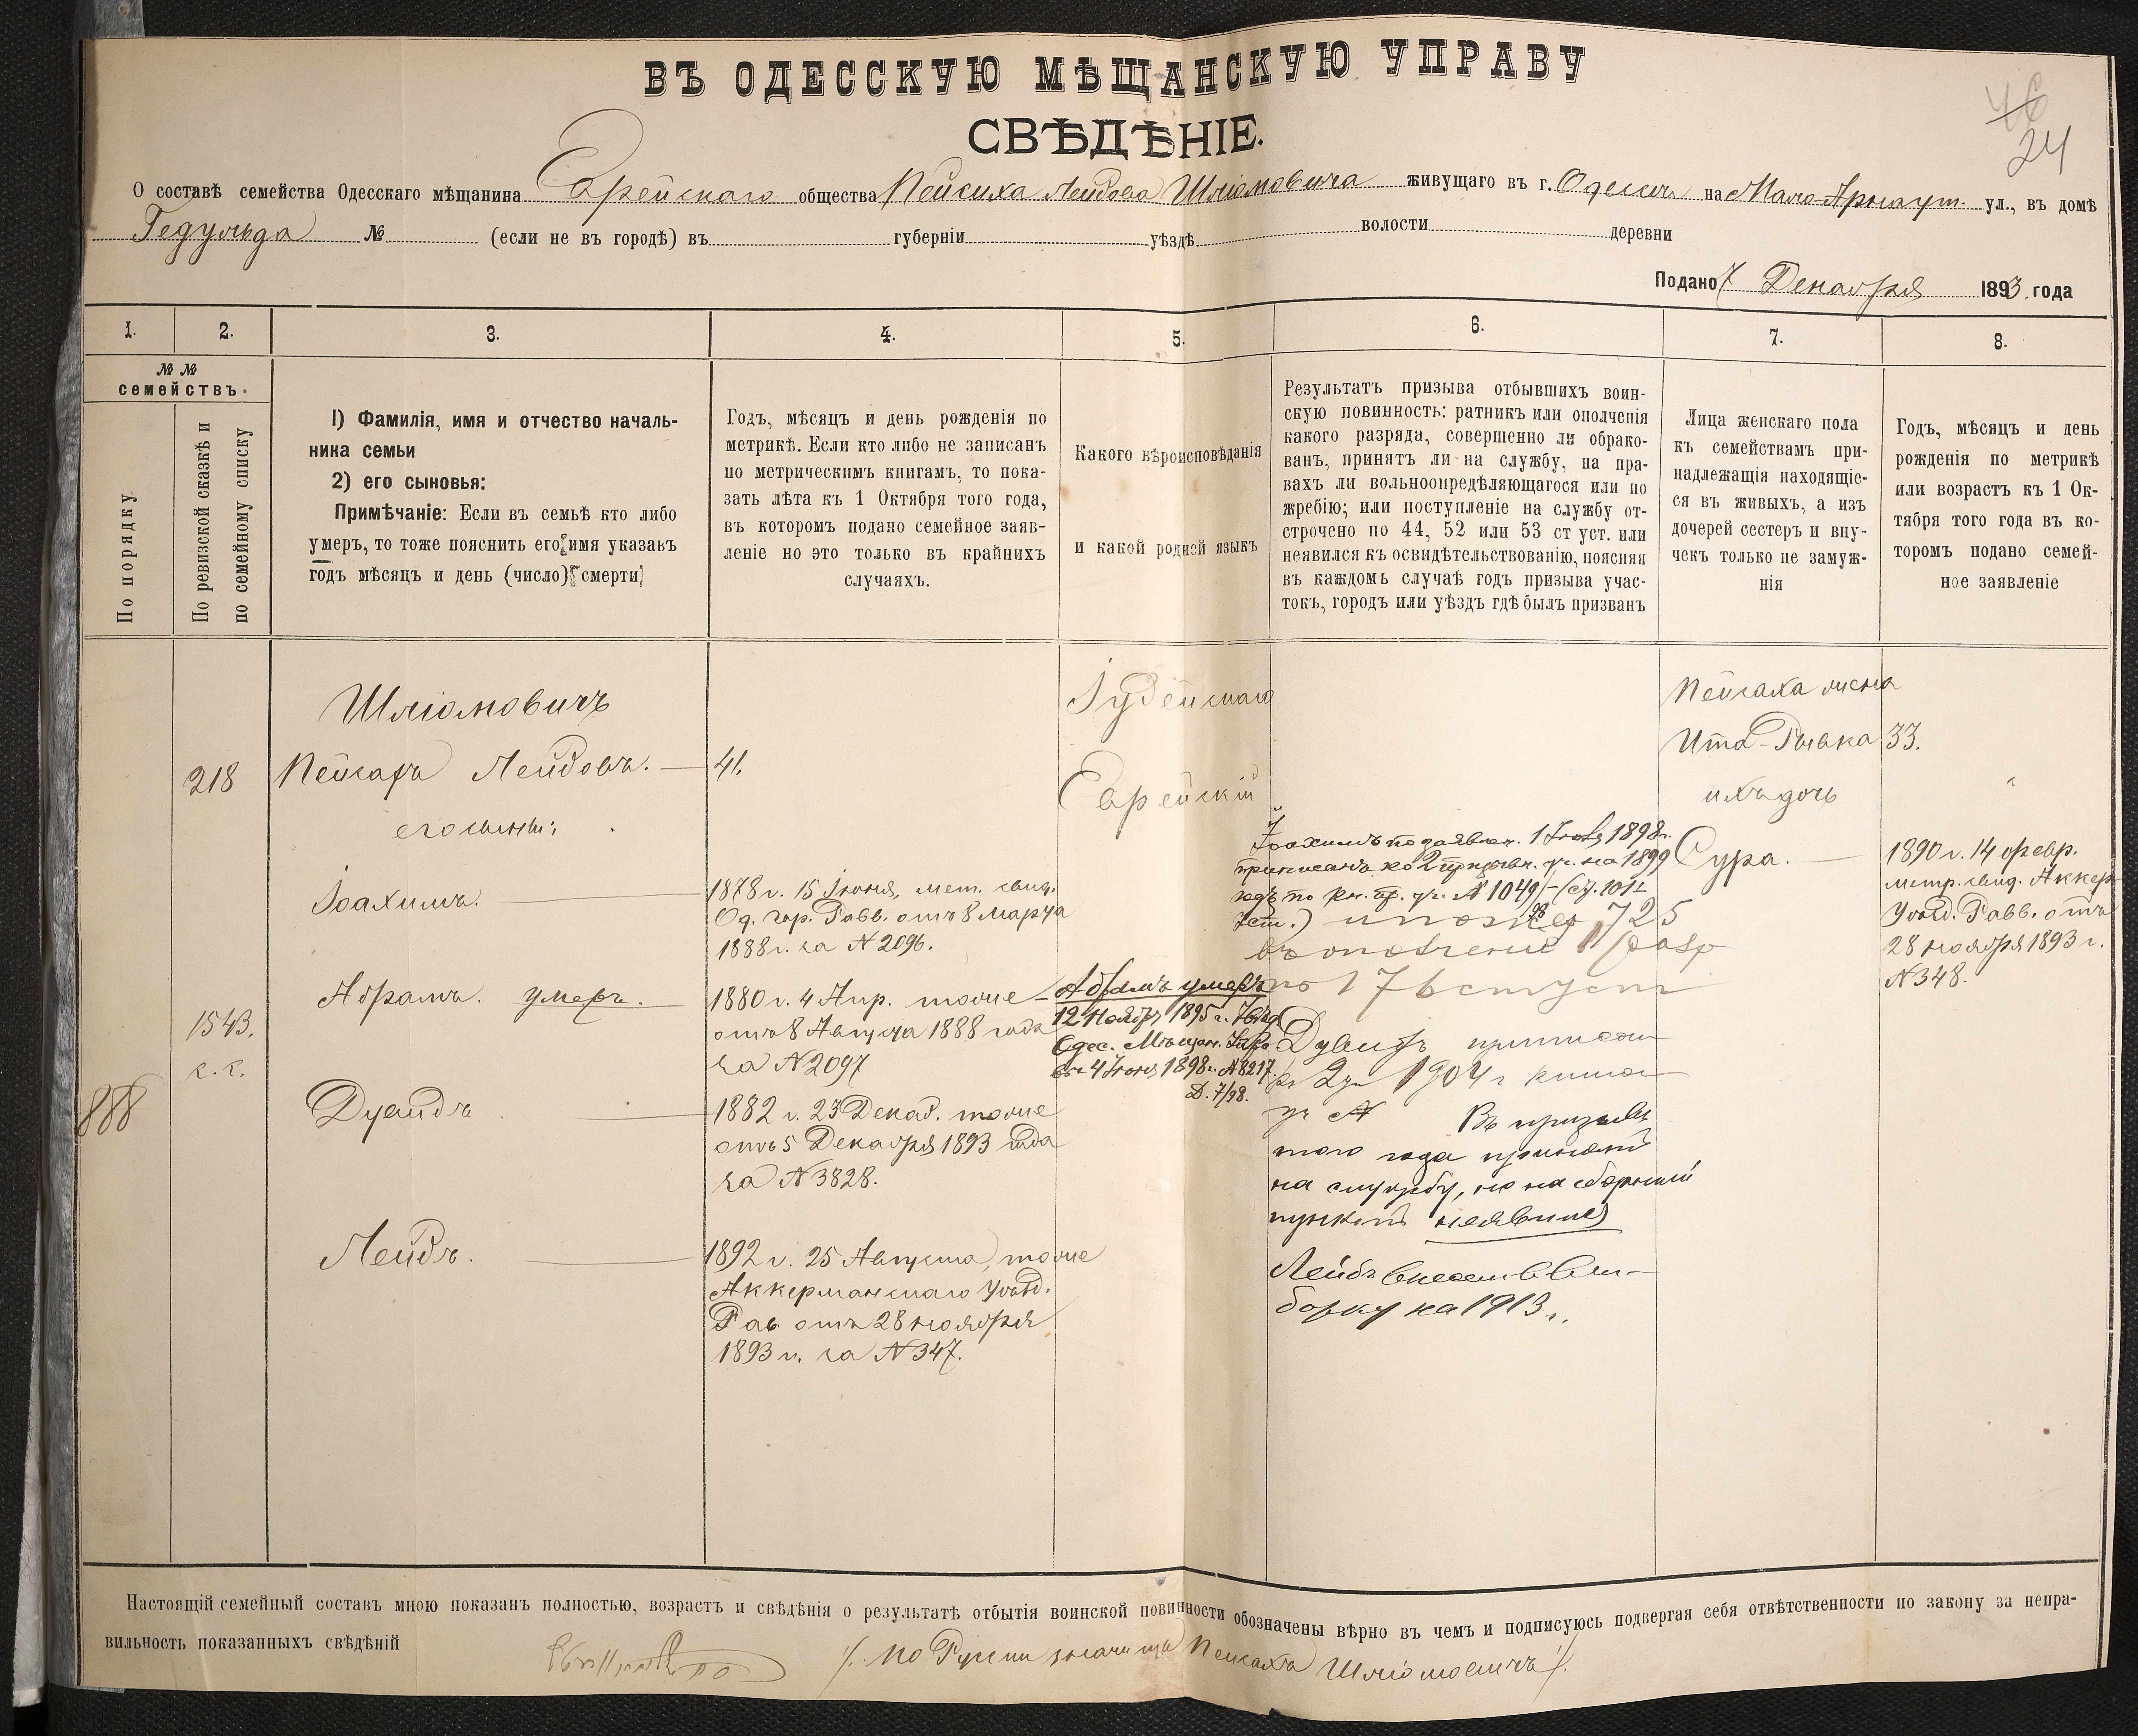 ВЪ ОДЕССКУЮ МѢЩАНСКУЮ УПРАВУ
СВѢДѢНІЕ.
46
24
О составѣ семейства Одесскаго мѣщанина Еврейскаго общества Пейсиха Лейбова Шліомовича живущаго въ г. Одессѣ на Мало-Арнаут. ул., въ домѣ
Гедульда № (если не въ городѣ) въ губерніи уѣздѣ волости деревни
Подано 7 Декабря 1893 года
1. 2. 3. 4. 5. 6. 7. 8.
№ №
семействъ.
По порядку
По ревизской сказкѣ и
по семейному списку
1) Фамилія, имя и отчество началь-
ника семьи
2) его сыновья:
Примѣчаніе: Если въ семьѣ кто либо
умеръ, то тоже пояснить его имя указавъ
годъ мѣсяцъ и день (число) смерти
Годъ, мѣсяцъ и день рожденія по
метрикѣ. Если кто либо не записанъ
по метрическимъ книгамъ, то пока-
зать лѣта къ 1 Октября того года,
въ которомъ подано семейное заяв-
леніе но это только въ крайнихъ
случаяхъ.
Какого вѣроисповѣданія
и какой родной языкъ
Результатъ призыва отбывшихъ воин-
скую повинность: ратникъ или ополченія
какого разряда, совершенно ли обрако-
ванъ, принятъ ли на службу, на пра-
вахъ ли вольноопредѣляющагося или по
жребію; или поступленіе на службу от-
строчено по 44, 52 или 53 ст уст. или
неявился къ освидѣтельствованію, поясняя
въ каждомъ случаѣ годъ призыва учас-
токъ, городъ или уѣздъ гдѣ былъ призванъ
Лица женскаго пола
къ семействамъ при-
надлежащія находящіе-
ся въ живыхъ, а изъ
дочерей сестеръ и вну-
чекъ только не замуж-
нія
Годъ, мѣсяцъ и день
рожденія по метрикѣ
или возрастъ къ 1 Ок-
тября того года въ ко-
торомъ подано семей-
ное заявленіе
888
218
1543.
с. с.
Шліомовичъ
Пейсахъ Лейбовъ.
его сыновья:
Іоахимъ.
Абрамъ. умеръ.
Дувидъ
Лейбъ.
41.
1878 г. 15 Іюня, мет. свид.
Од. гор. Равв. отъ 8 Марта
1888 г. за N 2096.
1880 г. 4 Апр. тоже
отъ 8 Августа 1888 года
за N 2097
1882 г. 23 Декаб. тоже
отъ 5 Декабря 1893 года
за N 3828.
1892 г. 25 Августа, тоже
Аккерманскаго Уѣзд.
Рав. отъ 28 ноября
1893 г. за N 347.
Іудейскаго
Еврейскій
Абрамъ умеръ
12 Ноября 1895 г.
Одес. Мѣщан. Упр.
4 Іюня 1898 г. N 8217.
Д. 7/98.
Іоахимъ по заявлен. 1 Іюля 1898 г.
приписанъ ко 2 призывн. уч. на 1899
годъ по кн. пр. уч. N 1049
725
въ ополченіе 1 разр
Дувидъ приписан
къ 2 уч 1904 г
N Въ призывѣ
того года принятъ
на службу, но на сборный
пунктъ неявился
Лейбъ внесен в вы-
борку на 1913 г.
Пейсаха жена
Ита-Рывка 33.
ихъ дочь
Сура.
1890 г. 14 февр.
метр. свид. Аккер
Уѣзд. Равв. отъ
28 ноября 1893 г.
N 348.
Настоящій семейный составъ мною показанъ полностью, возрастъ и свѣдѣнія о результатѣ отбытія воинской повинности обозначены вѣрно въ чемъ и подписуюсь подвергая себя отвѣтственности по закону за непра-
вильность показанныхъ свѣдѣній
/. По Русски значится Пейсахъ Шліомовичъ /.